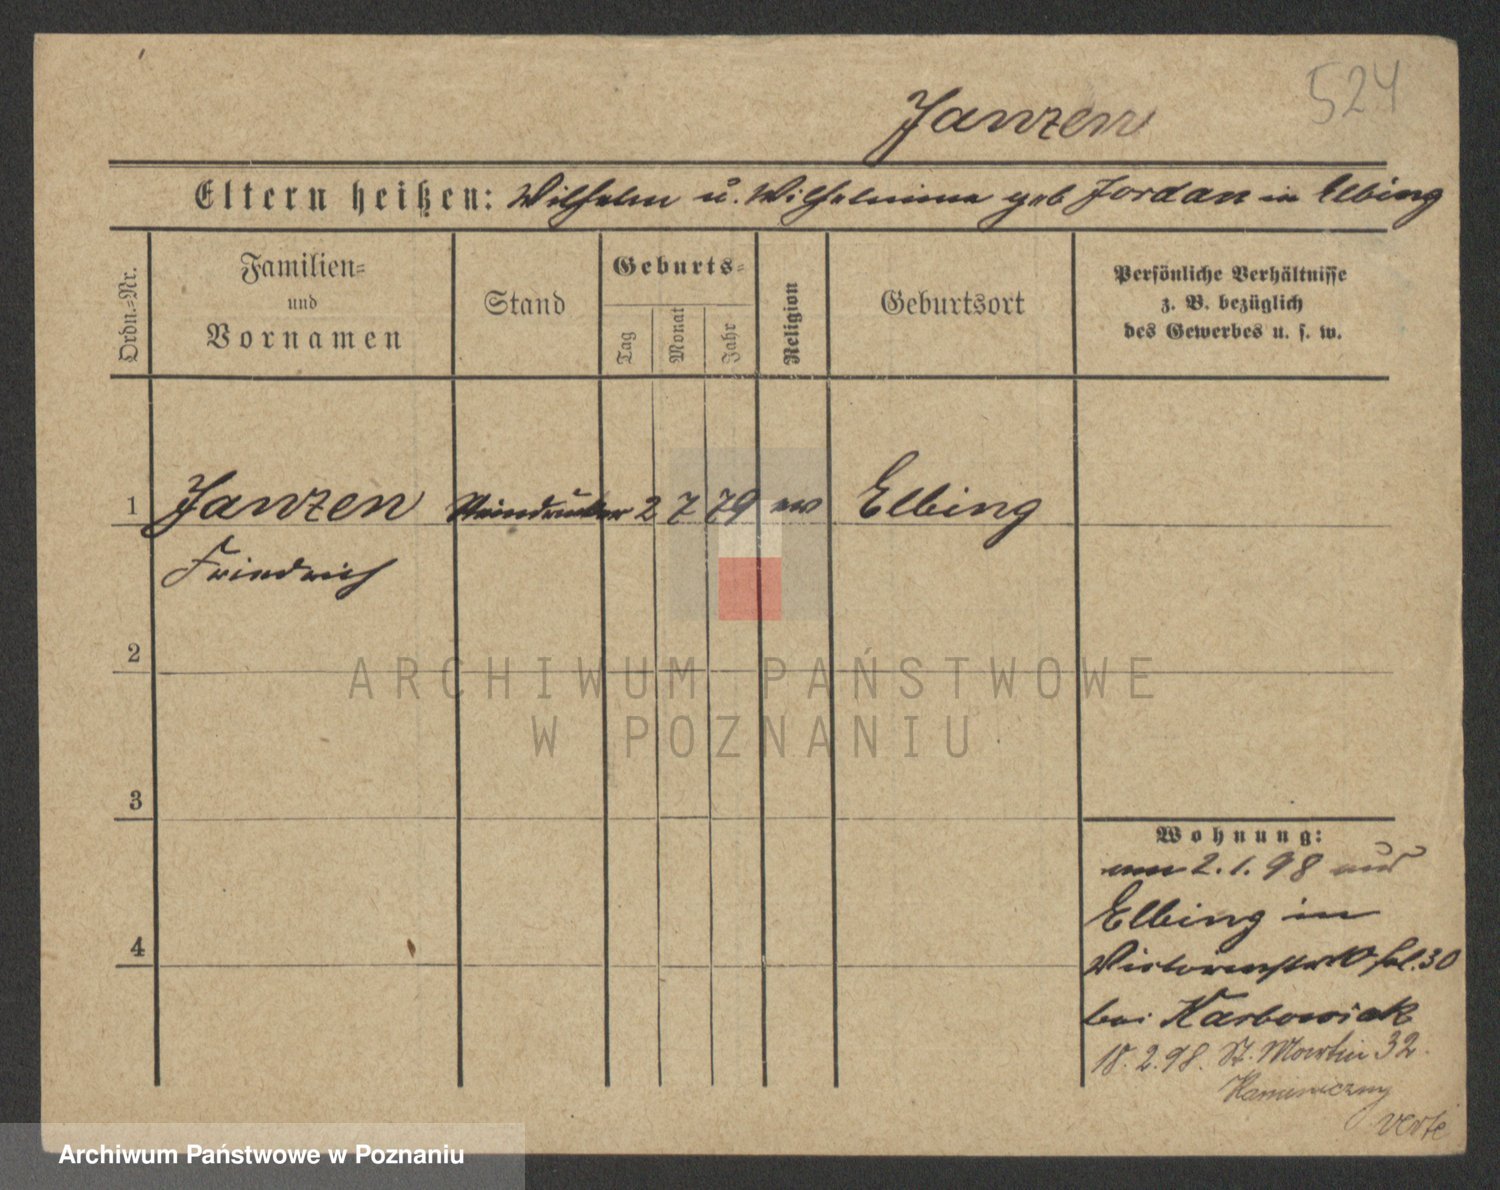 524
Janzen
Eltern heißen: Wilhelm u. Wilhelmine geb Jordan in Elbing
Ordn.=Nr.
Familien=
und
Vornamen
Stand
Geburts=
Tag
Monat
Jahr
Religion
Geburtsort
Persönliche Verhältnisse
z. B. bezüglich
des Gewerbes u. s. w.
1 Janzen Steindrucker 2 7 79 ev Elbing
Friedrich
2
3
4
Wohnung:
am 2.1.98 aus
Elbing in
30
bei Karbowiak
18.2.98. St. Martin 32.
Kamieniczny
verte
ARCHIWUM PAŃSTWOWE
W POZNANIU
Archiwum Państwowe w Poznaniu